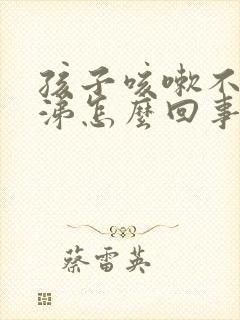 孩子咳嗽不
涕怎麼回事
蔡雷英